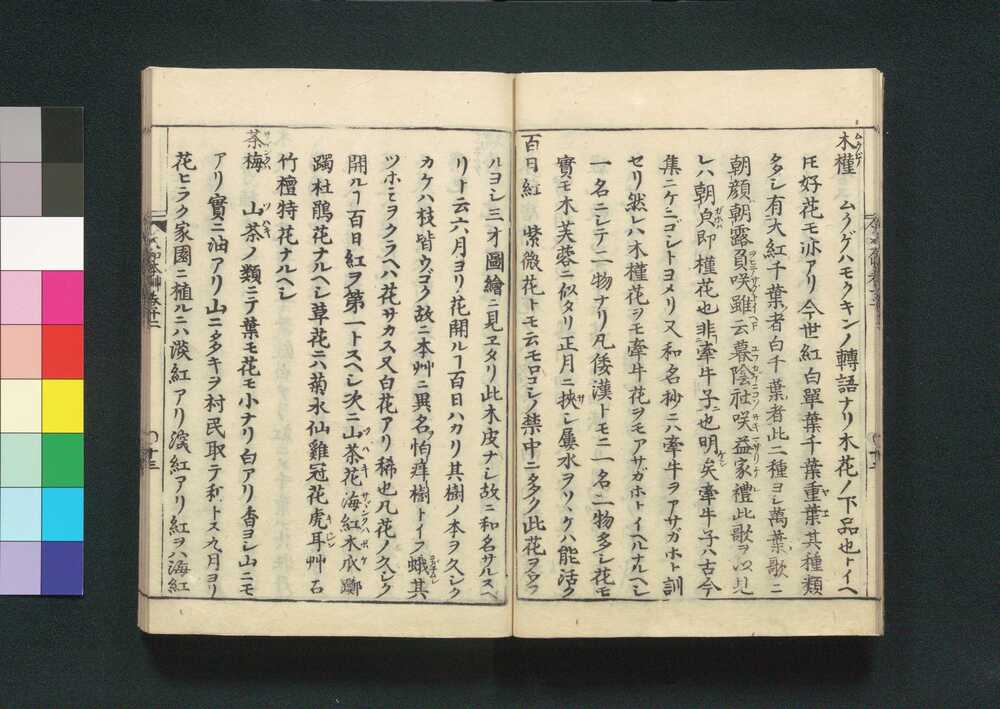 木槿 ムクゲハモクキンノ轉語ナリ木花ノ下品也トイヘ
𪜈好花モ亦アリ今世紅白單葉千葉重葉其種類
多シ有大紅千葉者白千葉者此二種ヨシ萬葉歌ニ
朝顏朝露負咲雖云暮陰社咲益家禮此歌ヲ以見
レハ朝皃即槿花也非牽牛子也明矣牽牛子ハ古今
集ニケニゴシトヨメリ又和名抄ニ牽牛ヲアサガホト訓
セリ然レハ木槿花ヲモ牽牛花ヲモアサガホトイヘルナルヘシ
一名ニシテ二物ナリ凡倭漢トモニ一名二物多シ花モ
實モ木芙蓉ニ似タリ正月ニ挾シ屢水ヲソヽケハ能活ク
百日紅 紫微花トモ云モロコシノ禁中ニ多ク此花ヲウフ
ルヨシ三才圖繪ニ見ヱタリ此木皮ナシ故ニ和名サルスヘ
リト云六月ヨリ花開ルヿ百日ハカリ其樹ノ本ヲ久シク
カケハ枝皆ウゴク故ニ本艸ニ異名怕痒樹トイフ蛾其
ツホミヲクラヘハ花サカス又白花アリ稀也凡花ノ久シク
開ルヿ百日紅ヲ第一トスヘシ次ニ山茶花海紅木瓜躑
躅杜鵑花ナルヘシ草花ニハ菊水仙雞冠花虎耳艸石
竹檀特花ナルヘシ
茶梅 山茶ノ類ニテ葉モ花モ小ナリ白アリ香ヨシ山ニモ
アリ實ニ油アリ山ニ多キヲ村民取テ利トス九月ヨリ
花ヒラク家園ニ植ルニハ淡紅アリ深紅アリ紅ヲハ海紅